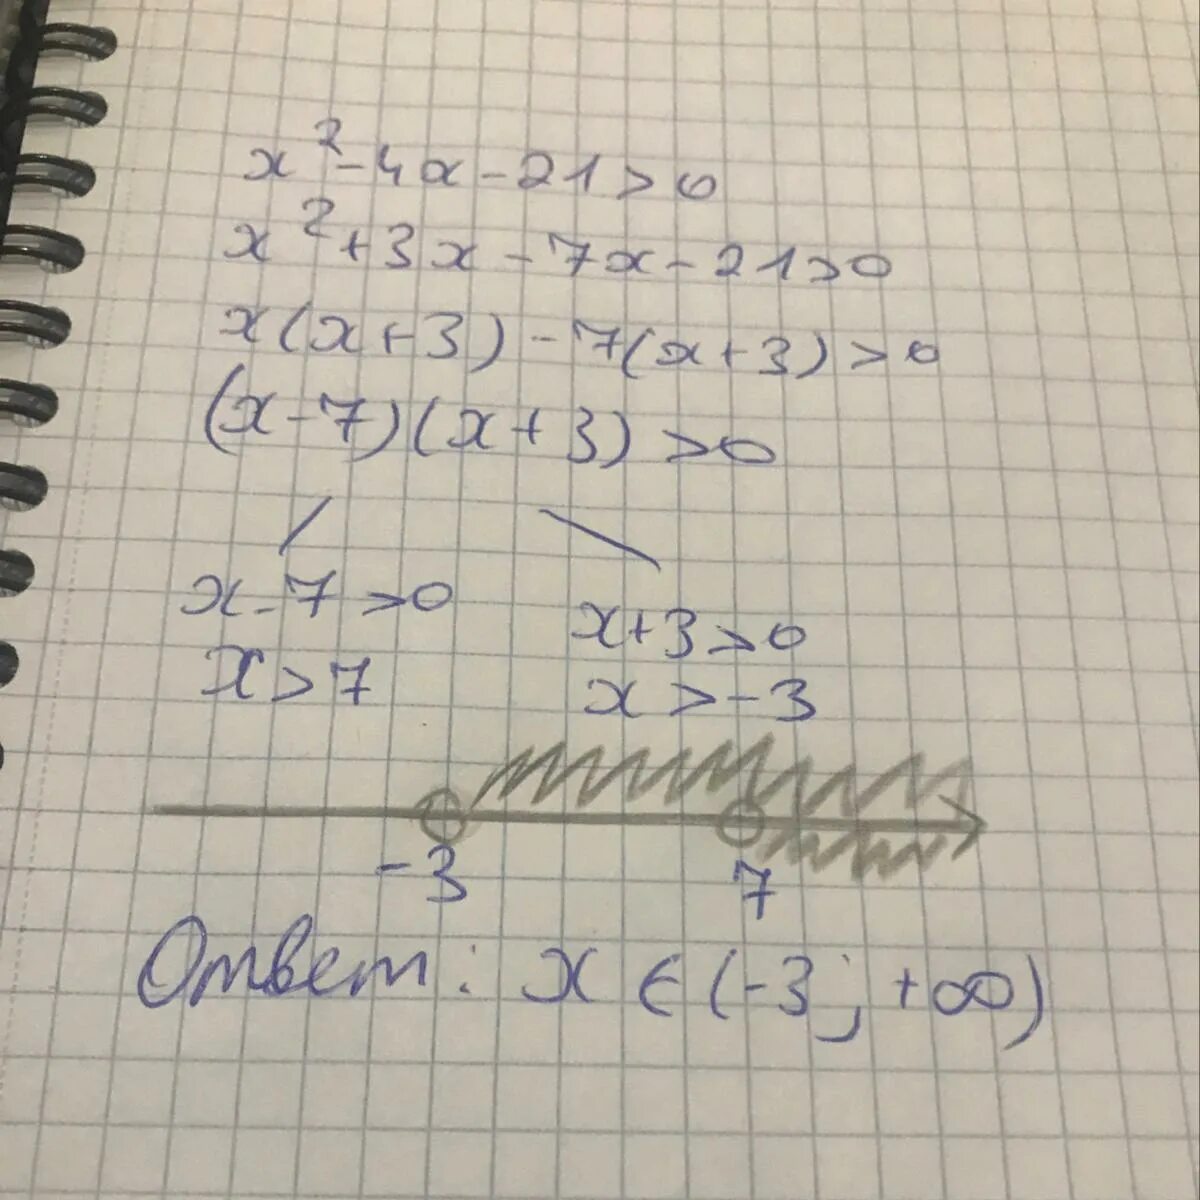 x²-4x-21>0
x²+3x-7x-21>0
x(x+3)-7(x+3)>0
(x-7)(x+3)>0
x-7>0
x>7
x+3>0
x>-3
-3 7
Ответ: x∈(-3; +∞)